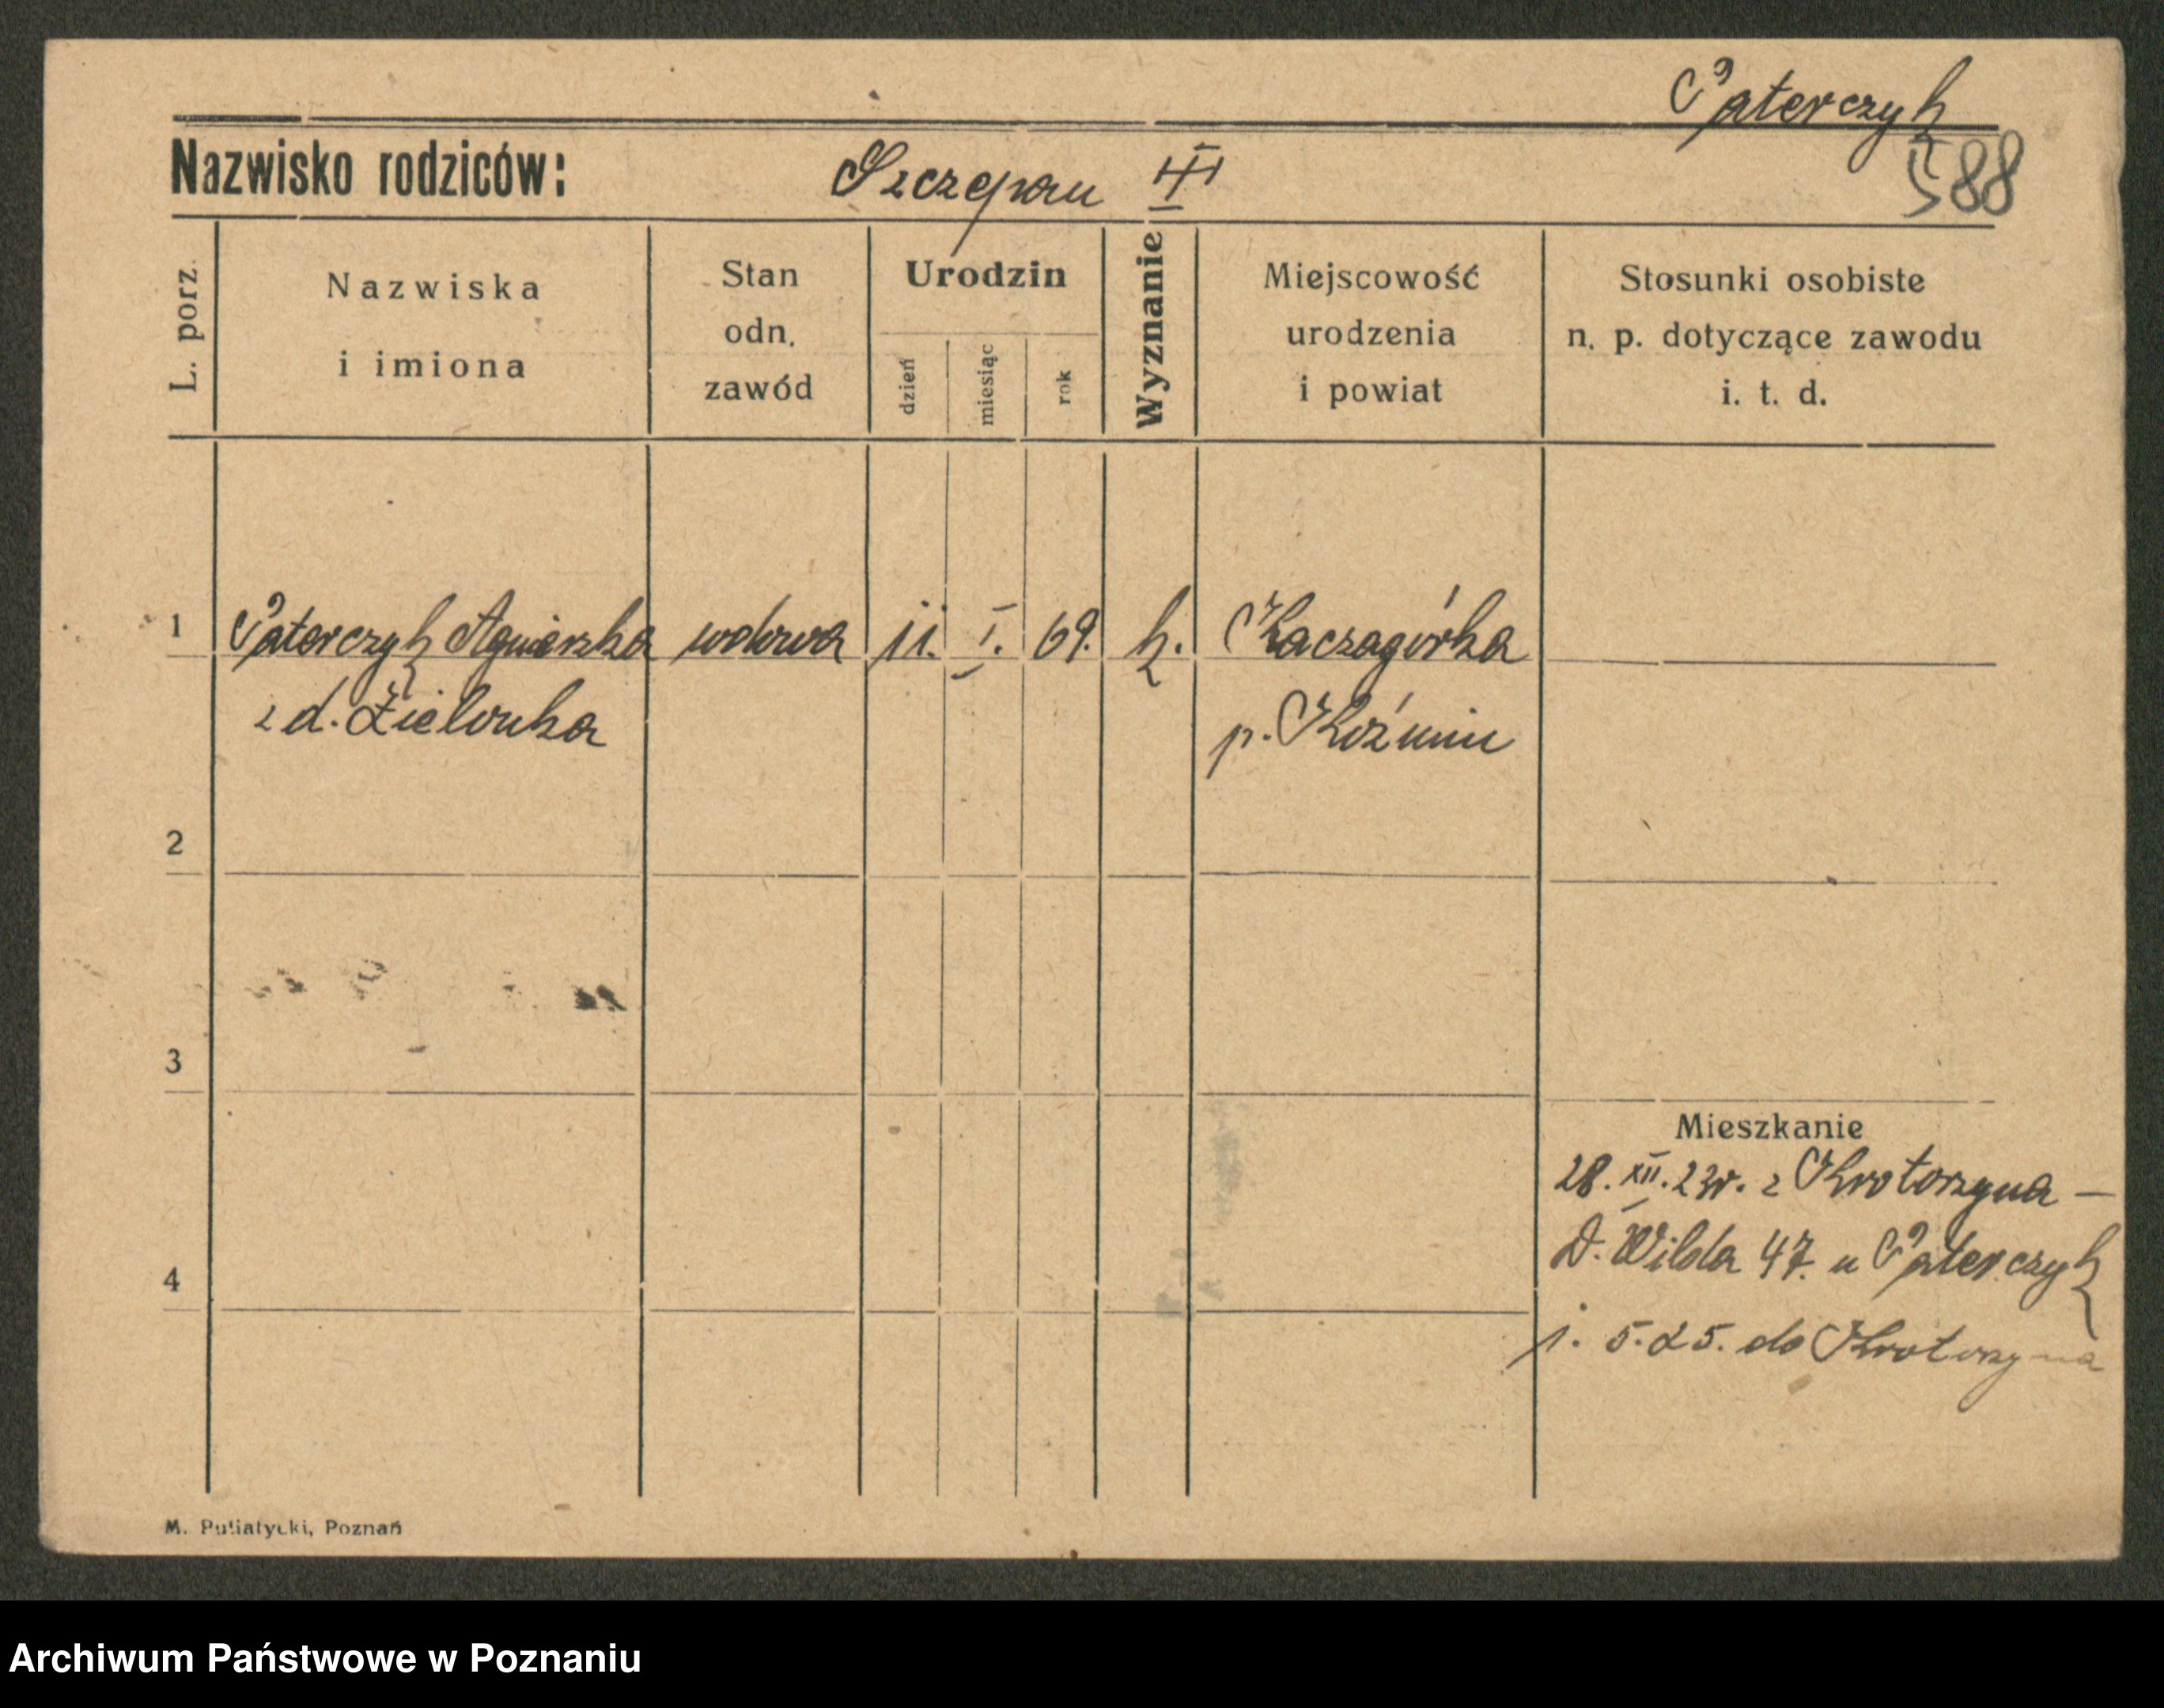 Paterczyk
Nazwisko rodziców: Szczepan III
588
L. porz.
Nazwiska
i imiona
Stan
odn.
zawód
Urodzin
dzień
miesiąc
rok
Wyznanie
Miejscowość
urodzenia
i powiat
Stosunki osobiste
n. p. dotyczące zawodu
i. t. d.
1 Paterczyk Agnieszka wdowa 11. I. 69. k. Kaczagórka
z d. Zielonka p. Koźmin
2
3
Mieszkanie
28. XII. 23r. z Krotoszyna —
D. Wilda 47. u Paterczyk
4
1. 5. 25. do Krotoszyna
M. Putiatycki, Poznań
Archiwum Państwowe w Poznaniu